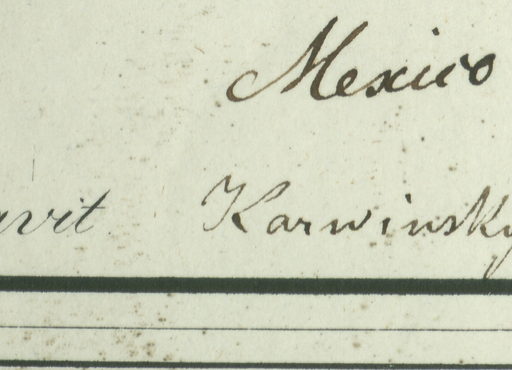 Mexico
avit Karwinsky